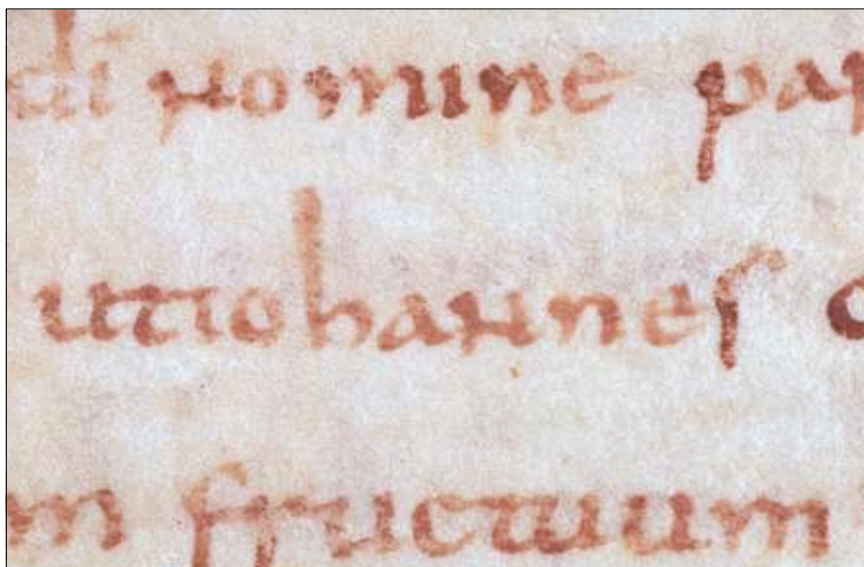 di nomine pap
ut iohannes
m fructuum